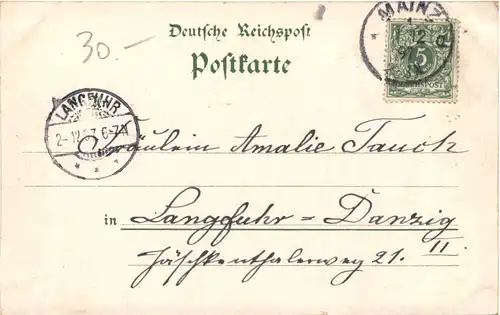 30.-
Deutsche Reichspost
Postkarte
MAINZ
1
12
97
5
LANGFUHR
2-12 97 6-7N
Fräulein Amalie Tauch
in Langfuhr = Danzig
Jäschkenthalerweg 21. II